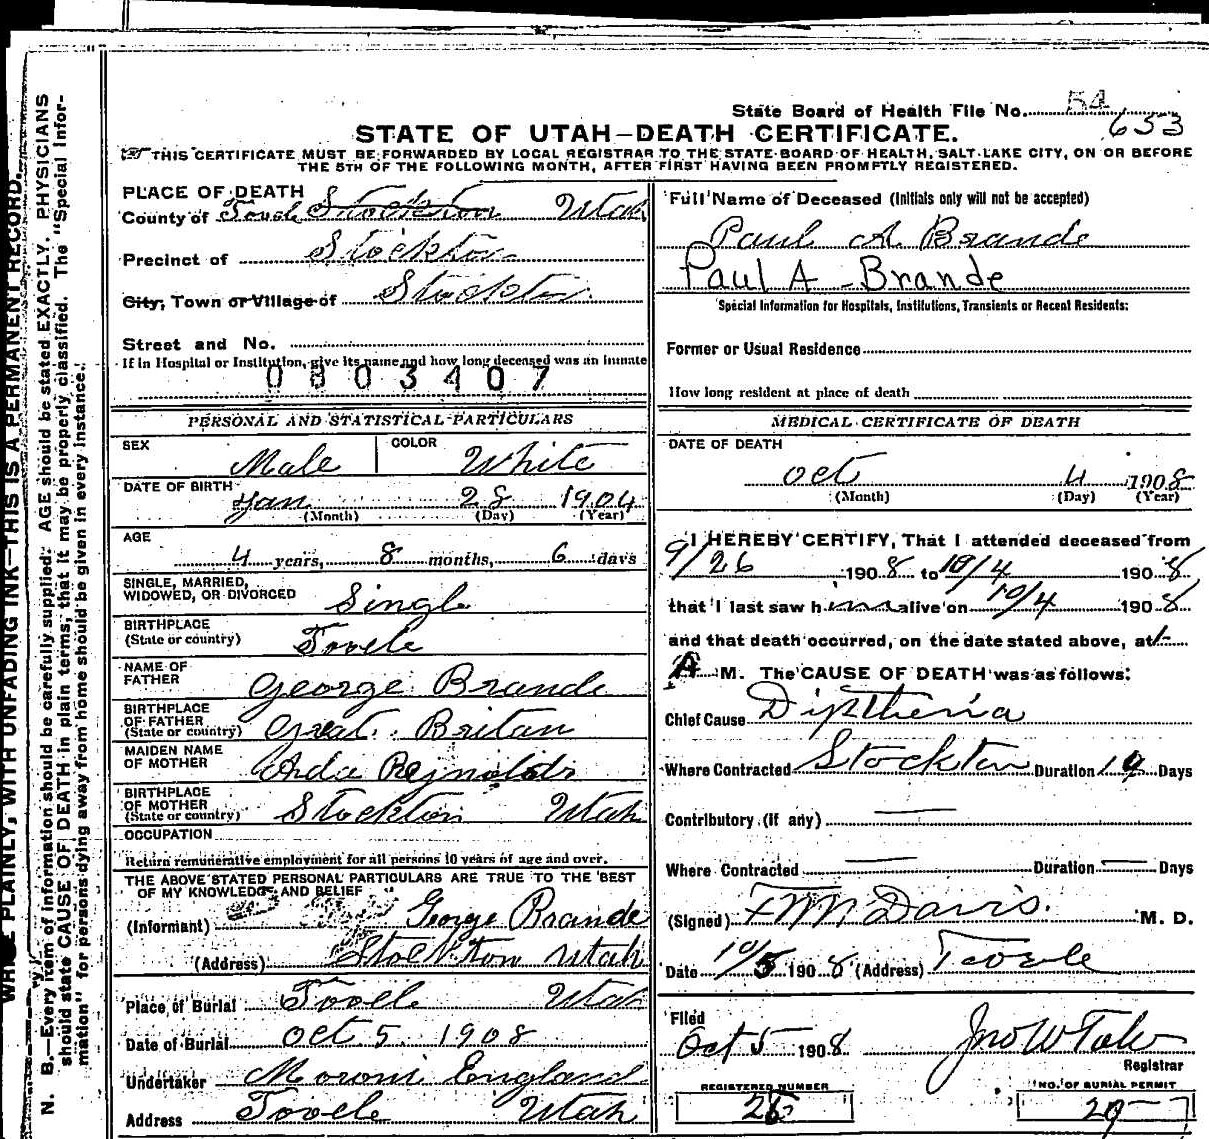 State Board of Health File No. 54
653
STATE OF UTAH—DEATH CERTIFICATE.
THIS CERTIFICATE MUST BE FORWARDED BY LOCAL REGISTRAR TO THE STATE BOARD OF HEALTH, SALT LAKE CITY, ON OR BEFORE
THE 5TH OF THE FOLLOWING MONTH, AFTER FIRST HAVING BEEN PROMPTLY REGISTERED.
PLACE OF DEATH
County of Tooele Stockton Utah
Precinct of Stockton
City, Town or Village of Stockton
Street and No.
If in Hospital or Institution, give its name and how long deceased was an inmate
0803407
PERSONAL AND STATISTICAL PARTICULARS
SEX Male COLOR White
DATE OF BIRTH Jan 28 1904
(Month) (Day) (Year)
AGE
4 years, 8 months, 6 days
SINGLE, MARRIED,
WIDOWED, OR DIVORCED Single
BIRTHPLACE
(State or country) Tooele
NAME OF
FATHER George Brande
BIRTHPLACE
OF FATHER
(State or country) Great Britan
MAIDEN NAME
OF MOTHER Arda Reynolds
BIRTHPLACE
OF MOTHER
(State or country) Stockton Utah
OCCUPATION
Return remunerative employment for all persons 10 years of age and over.
THE ABOVE STATED PERSONAL PARTICULARS ARE TRUE TO THE BEST
OF MY KNOWLEDGE AND BELIEF
(Informant) George Brande
(Address) Stockton Utah
Place of Burial Tooele Utah
Date of Burial Oct 5 1908
Undertaker Moroni England
Address Tooele Utah
Full Name of Deceased (Initials only will not be accepted)
Paul A Brande
Paul A Brande
Special Information for Hospitals, Institutions, Transients or Recent Residents:
Former or Usual Residence
How long resident at place of death
MEDICAL CERTIFICATE OF DEATH
DATE OF DEATH
Oct 4 1908
(Month) (Day) (Year)
I HEREBY CERTIFY, That I attended deceased from
9/26 1908 to 10/4 1908
that I last saw him alive on 10/4 1908
and that death occurred, on the date stated above, at 1-
A M. The CAUSE OF DEATH was as follows:
Chief Cause Diptheria
Where Contracted Stockton Duration Days
Contributory (if any) —
Where Contracted — Duration — Days
(Signed) Davis M. D.
Date 10/5 1908 (Address) Tooele
Filed
Oct 5 1908 Jno W Tate
Registrar
REGISTERED NUMBER
NO. OF BURIAL PERMIT
N. B.—Every item of information should be carefully supplied. AGE should be stated EXACTLY. PHYSICIANS
should state CAUSE OF DEATH in plain terms, that it may be properly classified. The "Special Infor-
mation" for persons dying away from home should be given in every instance.
PLAINLY, WITH UNFADING INK—THIS IS A PERMANENT RECORD.